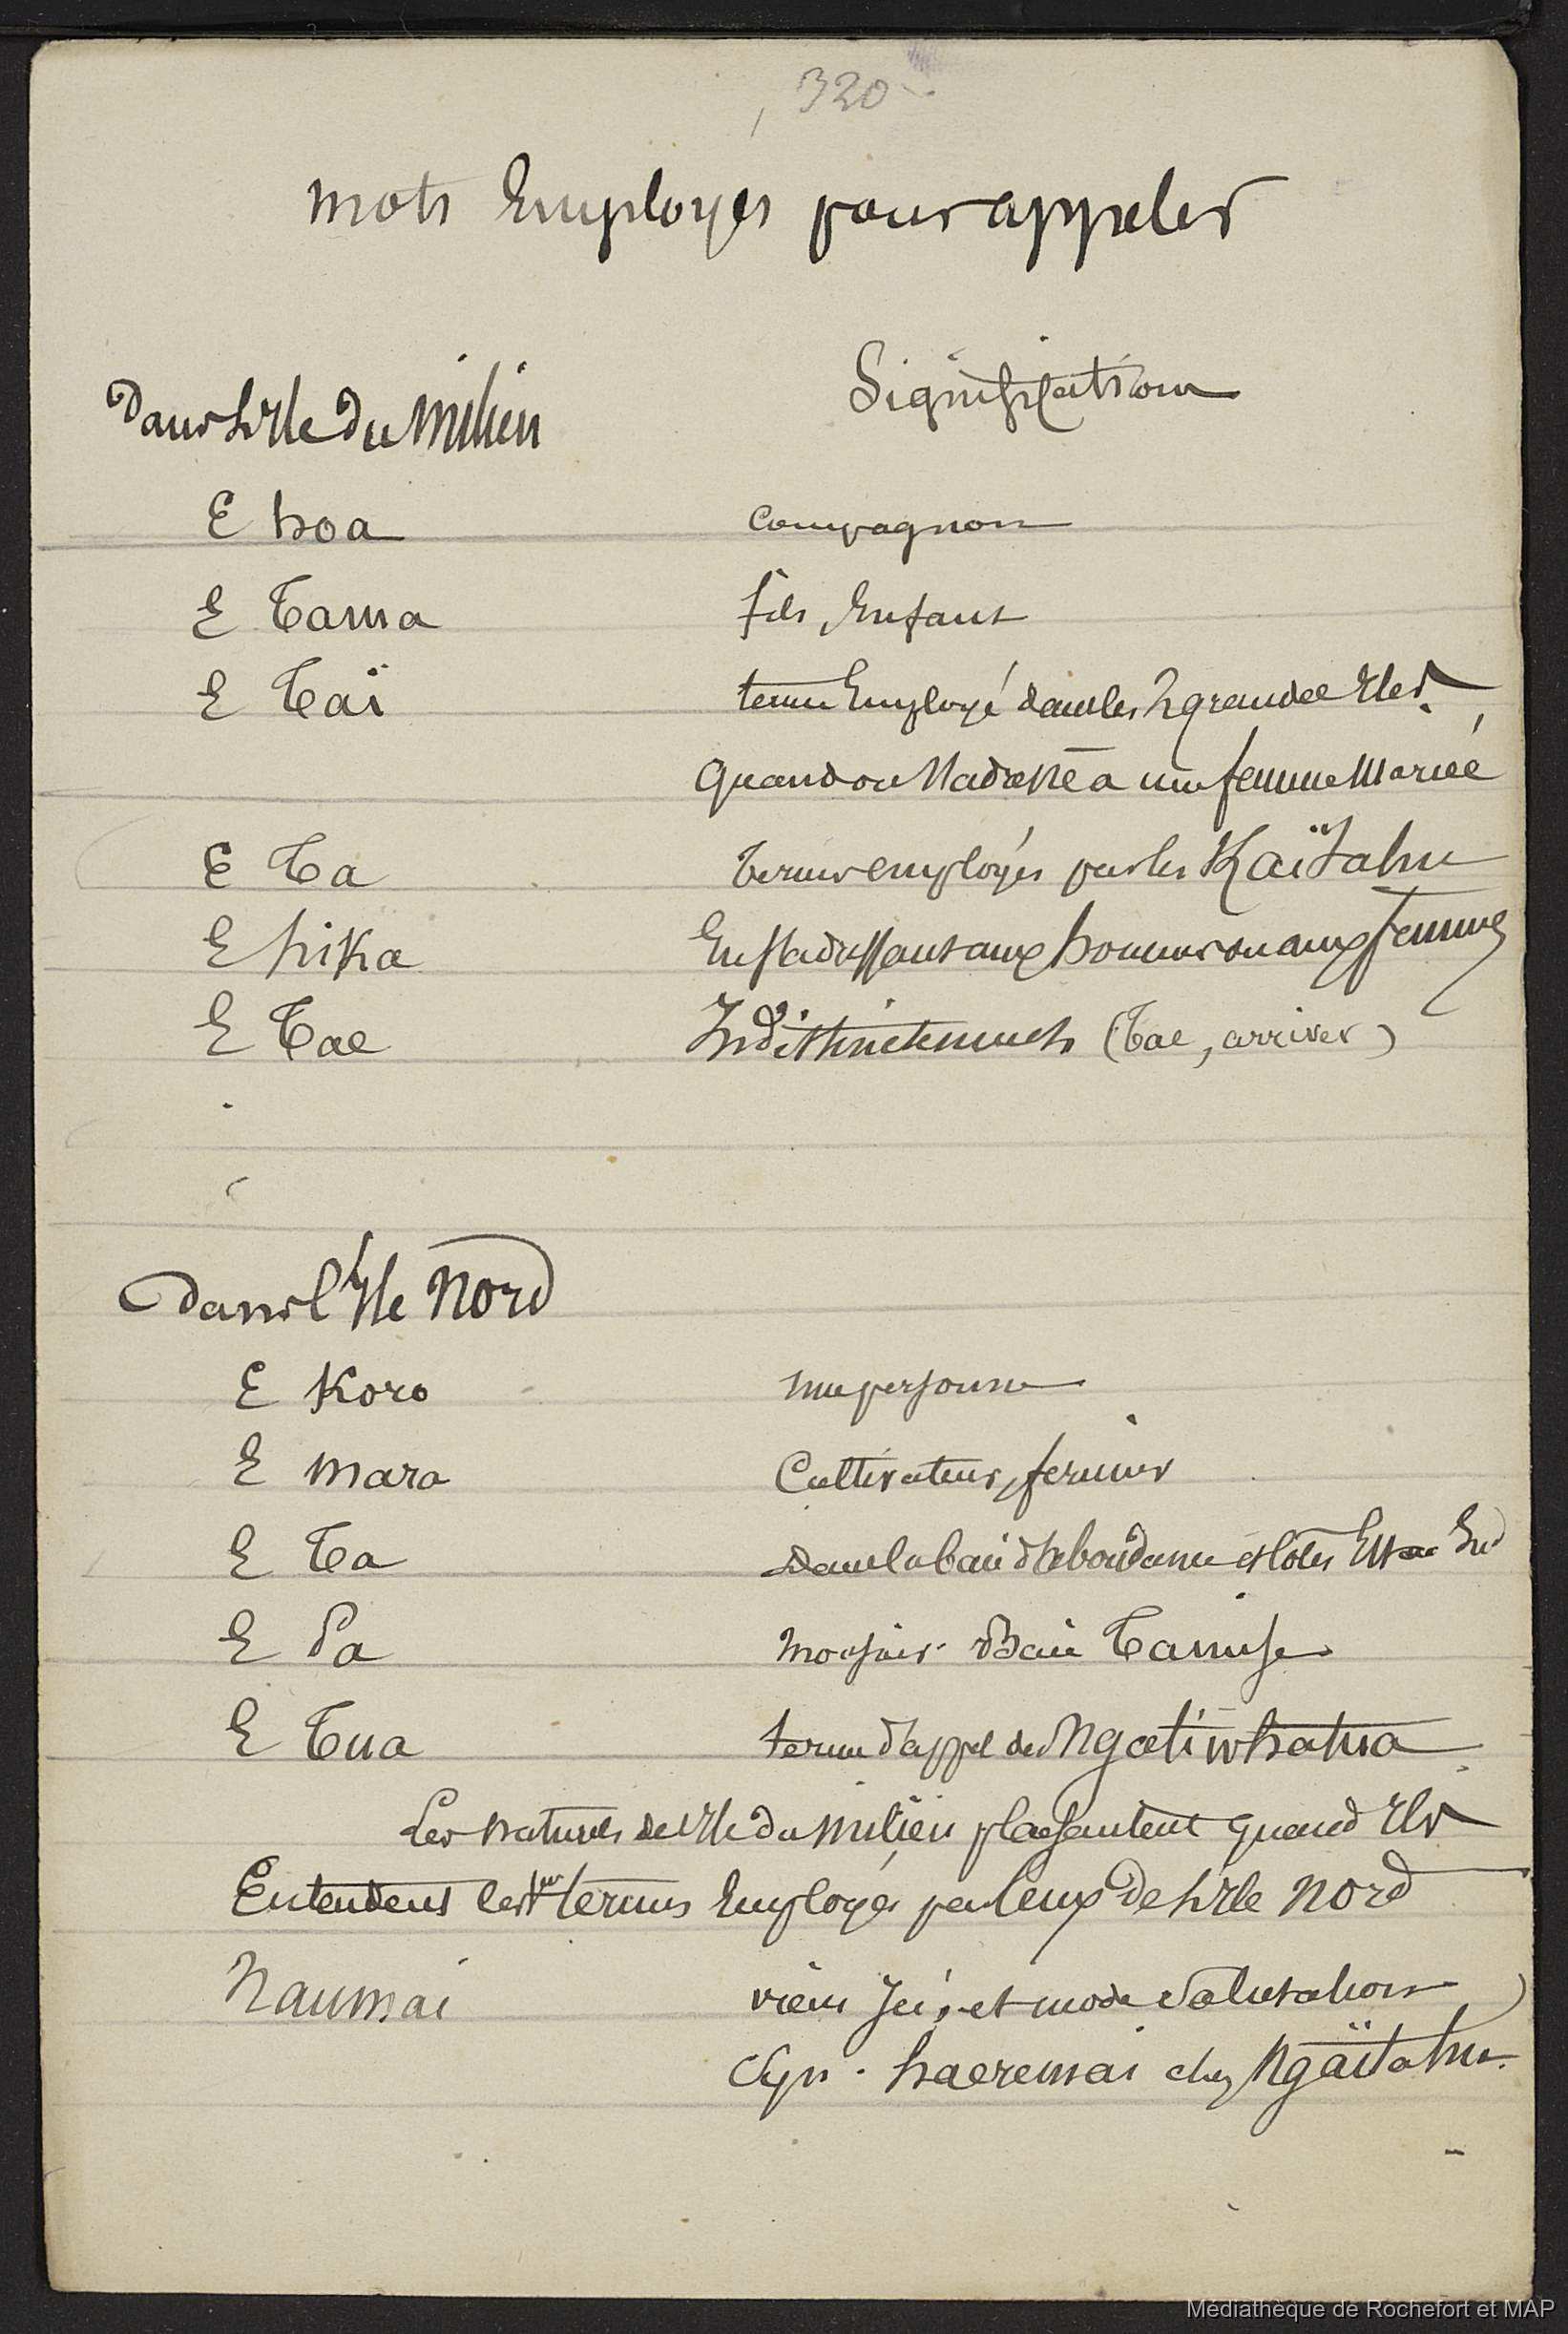 320
Mots Employés pour appeler
Dans L'Ile du Milieu Signification
E hoa compagnon
E Tama fils, Enfant
E Taï terme Employé dans les 2 grandes Iles.
quand on s'adresse a une femme Mariée
E Ta termes employés par les Kaïtahu
E hika En s'adressant aux hommes ou aux femmes
E Tae Indistinctement (Tae, arriver)
Dans l'Ile Nord
E Koro une personne
E mara Cultivateur, fermier
E Ta Dans la baie d'abondance et Côtes Est Sud
E Pa Baie Tamise
E Tua terme d'appel des Ngatiwhatua
Les naturels de l'Ile du Milieu plaisantent quand Ils
Entendent les termes Employés par Ceux de L'Ile Nord
Naumai viens Ici, et mode Salutation
Syn. haeremai chez Ngaïtahu.
Médiathèque de Rochefort et MAP